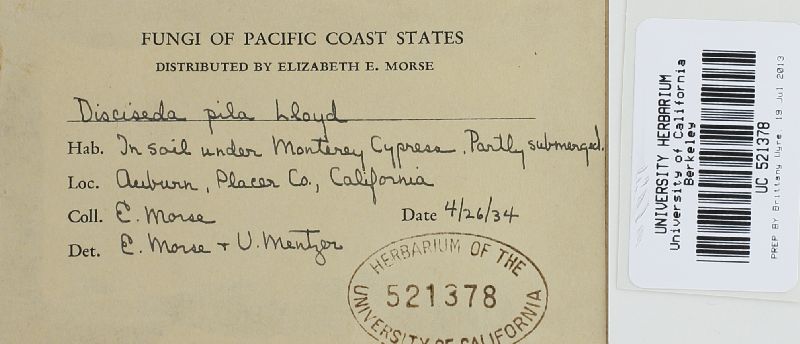 FUNGI OF PACIFIC COAST STATES
DISTRIBUTED BY ELIZABETH E. MORSE
Disciseda pila Lloyd
Hab. In soil under Monterey Cypress. Partly submerged.
Loc. Auburn, Placer Co., California
Coll. E. Morse Date 4/26/34
Det. E. Morse + V. Mentzer
HERBARIUM OF THE
521378
UNIVERSITY OF CALIFORNIA
UNIVERSITY HERBARIUM
University of California
Berkeley
UC 521378
PREP BY Brittany Wyre 19 Jul 2013